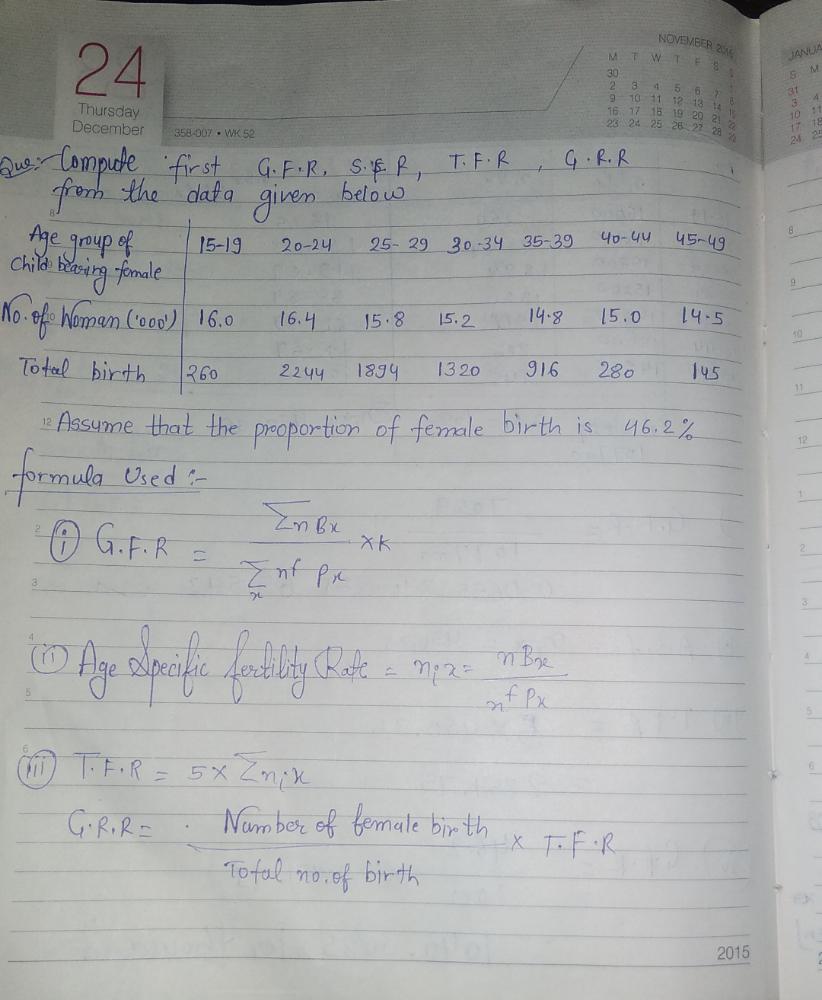 24
Thursday
December
358-007 • WK 52
NOVEMBER 2015
M T W T F S S
30 1
2 3 4 5 6 7 8
9 10 11 12 13 14 15
16 17 18 19 20 21 22
23 24 25 26 27 28 29
JANUA
S M
31
3 4
10 11
17 18
24 25
Que:- Compute first G.F.R, S.F R, T.F.R , G.R.R
from the data given below
Age group of 15-19 20-24 25-29 30-34 35-39 40-44 45-49
Child bearing female
No. of Woman ('000') 16.0 16.4 15.8 15.2 14.8 15.0 14.5
Total birth 260 2244 1894 1320 916 280 145
Assume that the proportion of female birth is 46.2%
formula Used :-
(i) G.F.R = Σn Bx / Σx nf Px × K
(ii) Age Specific fertility Rate = nix = nBx / nf Px
(iii) T.F.R = 5 × Σnix
G.R.R = Number of female birth / Total no. of birth × T.F.R
2015